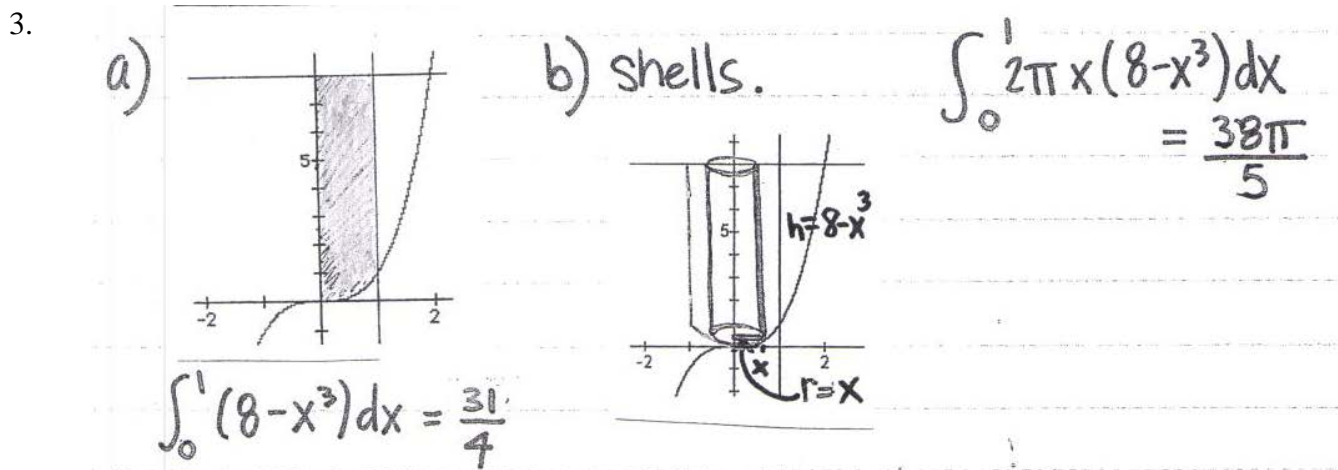 3.
a)
5
-2
2
∫₀¹ (8-x³)dx = 31/4
b) shells.
5
h=8-x³
-2
x
2
r=x
∫₀¹ 2π x(8-x³)dx
= 38π/5